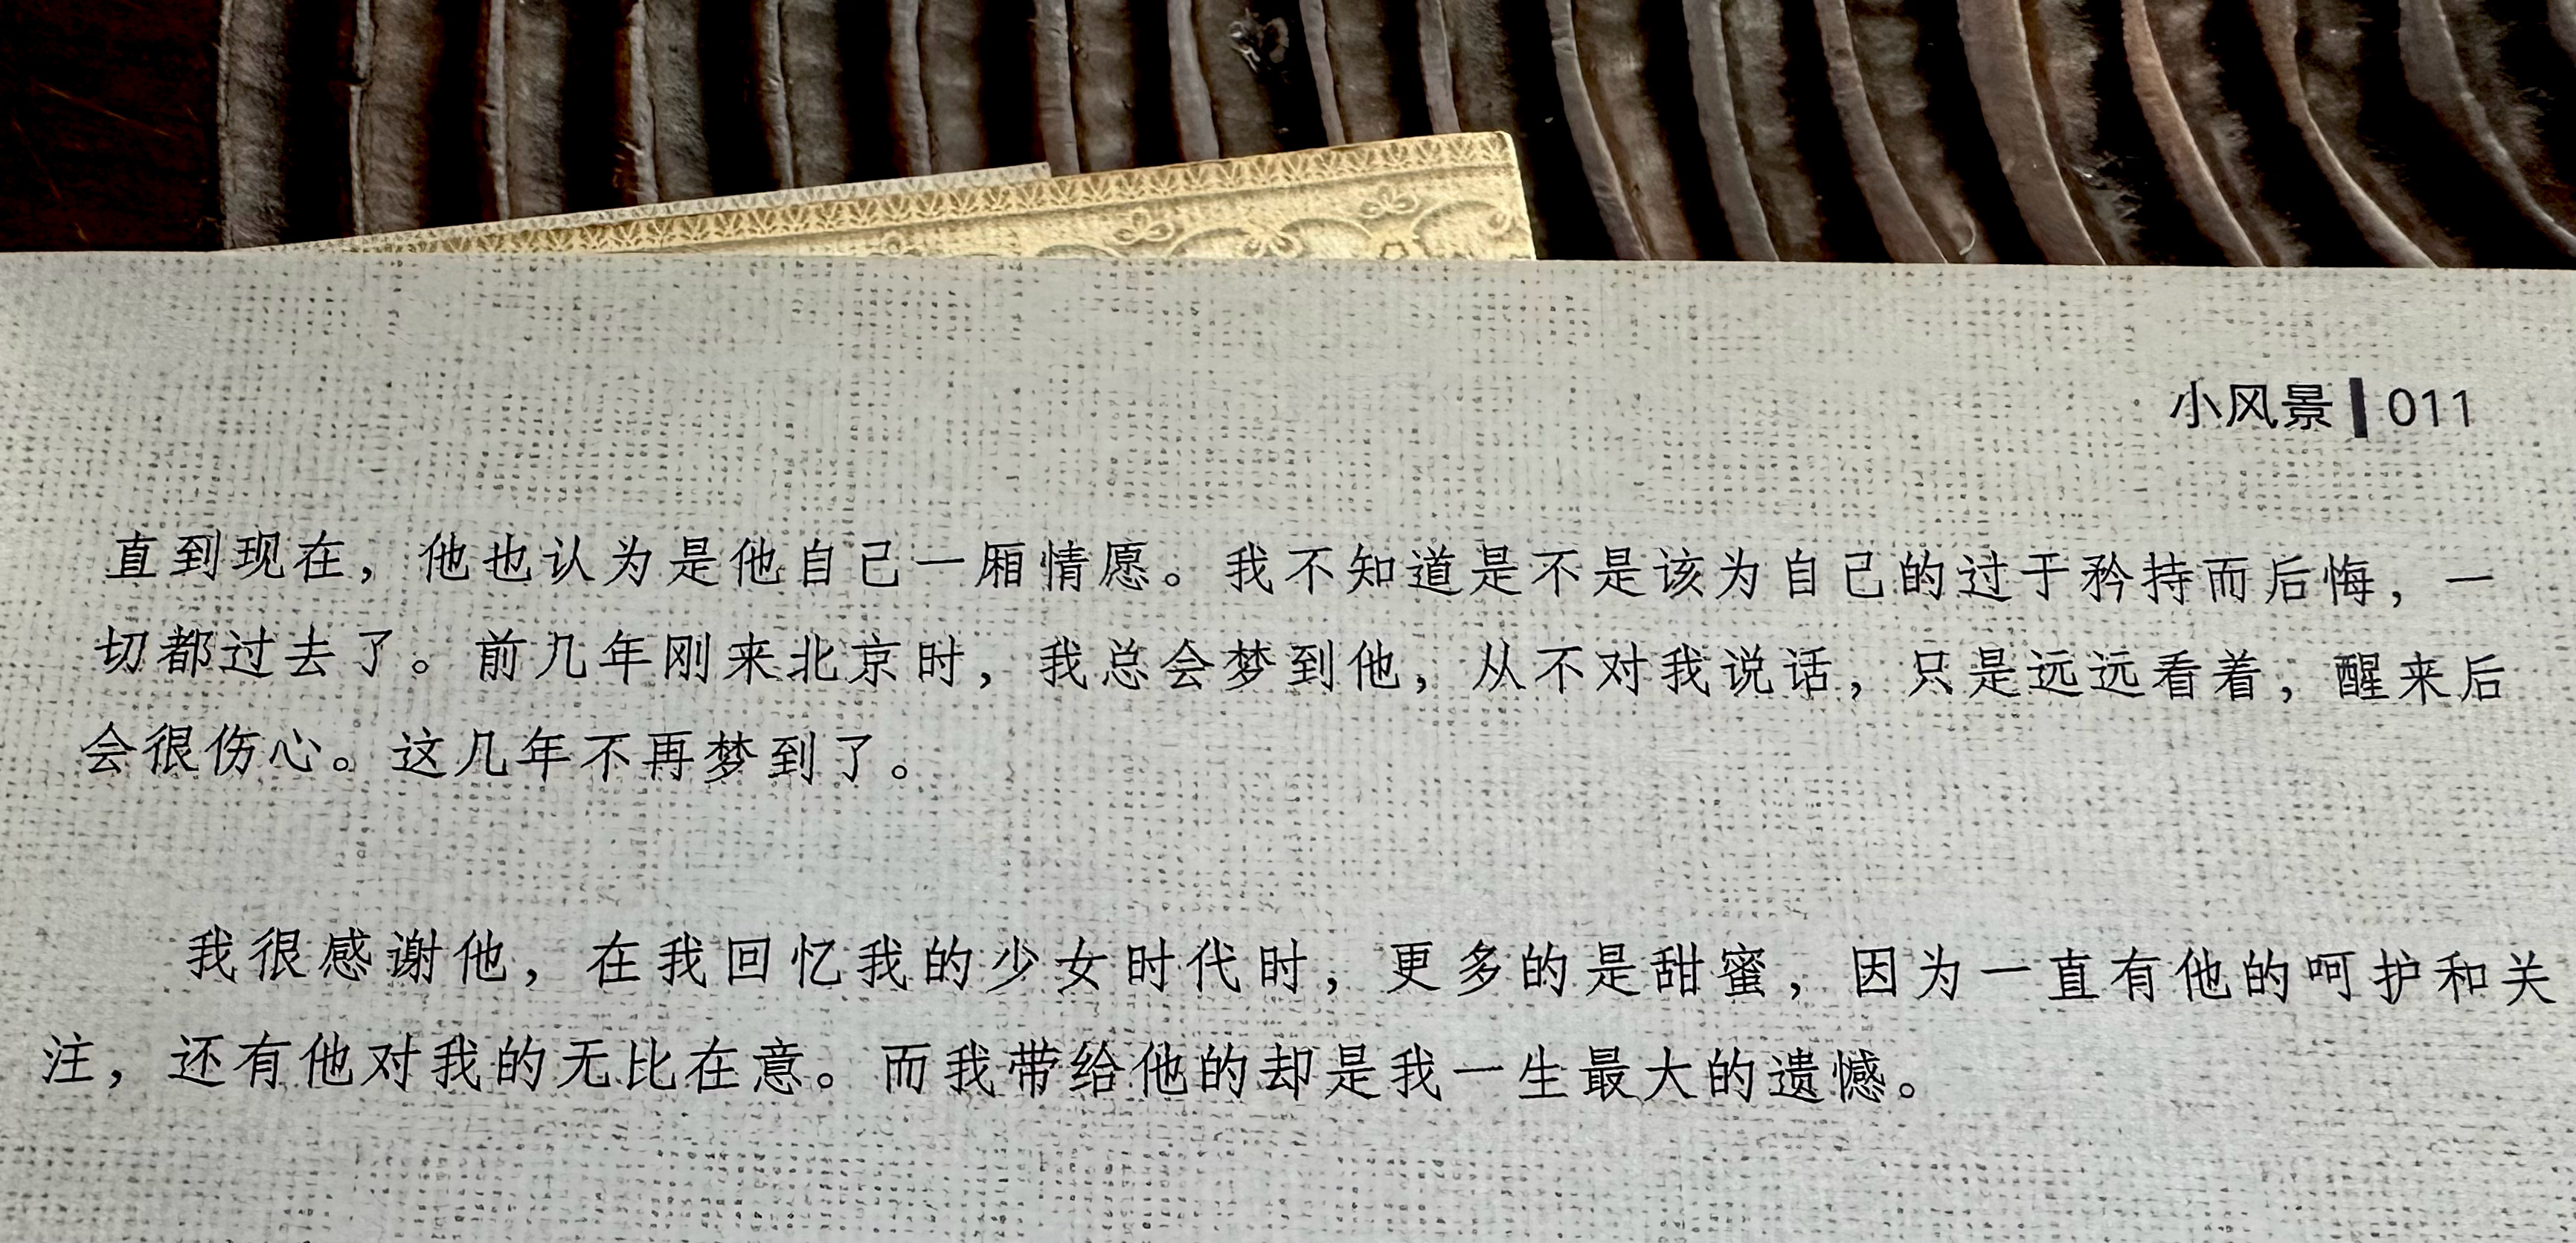 小风景 011
直到现在，他也认为是他自己一厢情愿。我不知道是不是该为自己的过于矜持而后悔，一
切都过去了。前几年刚来北京时，我总会梦到他，从不对我说话，只是远远看着，醒来后
会很伤心。这几年不再梦到了。
我很感谢他，在我回忆我的少女时代时，更多的是甜蜜，因为一直有他的呵护和关
注，还有他对我的无比在意。而我带给他的却是我一生最大的遗憾。